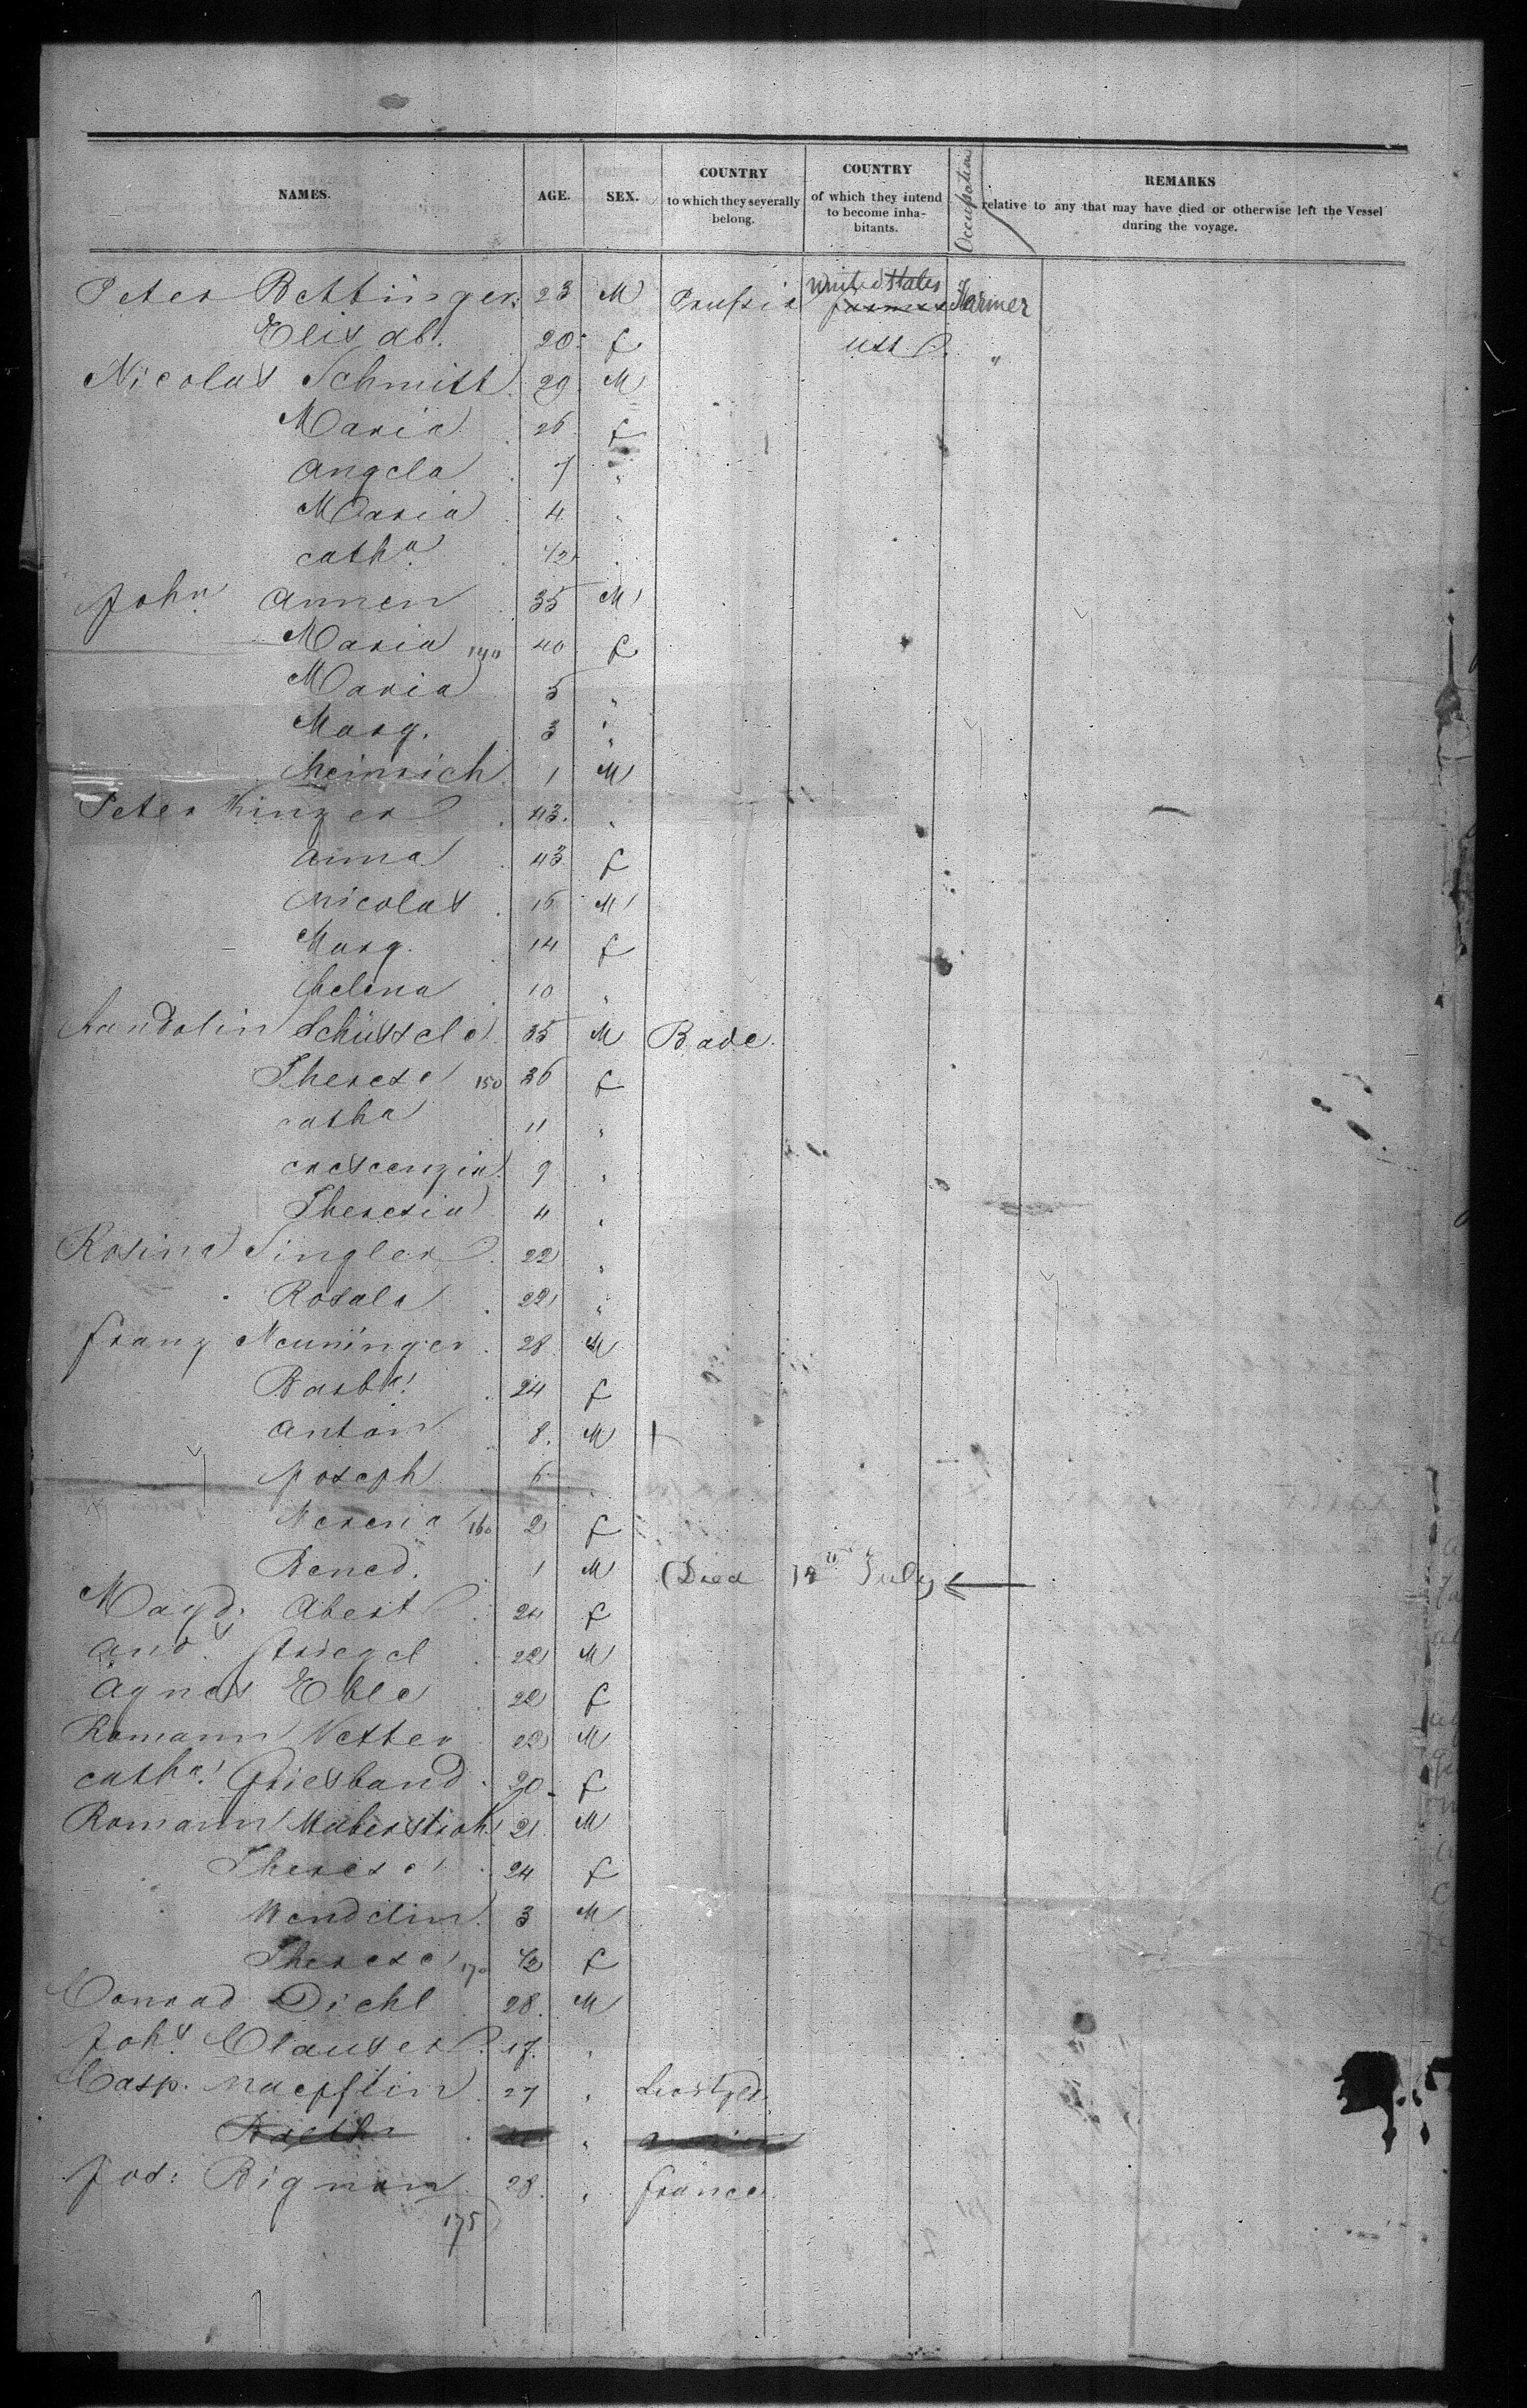 NAMES. AGE. SEX. COUNTRY to which they severally belong. COUNTRY of which they intend to become inhabitants. Occupation REMARKS relative to any that may have died or otherwise left the Vessel during the voyage.
Peter Bettinger 23 M Prussia United States Farmer
Elisab. 20 f "
Nicolas Schmitt 29 M
Maria 26 f
Angela 7 "
Maria 4 "
cath.a 1/2 "
John Annen 35 M
Maria 140 40 f
Maria 5 "
Marg. 3 "
heinrich 1 M
Peter Kinzer 43. "
anna 43 f
nicolas 16 M
Marg. 14 f
helena 10 "
Schüssele 35 M Bade.
Therese 150 36 f
catha 11 "
crescenzia 9 "
Theresia 4 "
Rosina Singler 22 "
Rosala 22 "
franz Neuninger 28 M
Barb.a 24 f
anton 8. M
Joseph 6 "
160 2 f
Bened. 1 M (Died July
Magd. Abert 24 f
And.s Striegel 22 M
Agnes Eble 22 f
Romann Vetter 22 M
cath.a Griesband 20 f
Romann Haberstroh 21 M
Therese 24 f
Wendelin 3 M
Therese 170 1/2 f
Conrad Diehl 28. M
Joh.s Clauser 17. "
Casp. 27 "
"
Jos: Bignon 28. " france
175